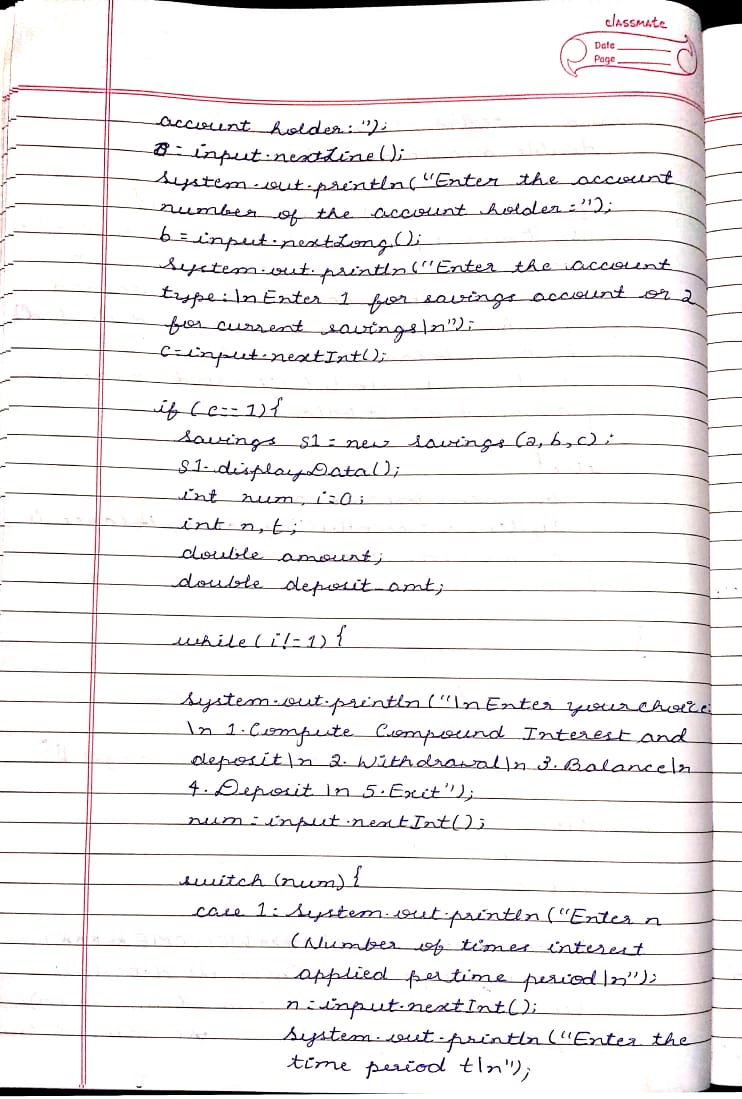 classmate
Date
Page
account holder: ");
a = input.nextLine();
System.out.println("Enter the account
number of the account holder:");
b = input.nextLong();
System.out.println("Enter the account
type:\n Enter 1 for savings account or 2
for current savings\n");
c=input.nextInt();
if (c==1){
Savings S1 = new Savings (a,b,c);
S1.displayData();
int num, i=0;
int n,t;
double amount;
double deposit_amt;
while(i!=1){
System.out.println("\nEnter your choice:
\n 1.Compute Compound Interest and
deposit\n 2. Withdrawal\n 3. Balance\n
4. Deposit \n 5.Exit");
num = input.nextInt();
switch (num) {
case 1: System.out.println("Enter n
(Number of times interest
applied per time period \n");
n = input.nextInt();
System.out.println("Enter the
time period t\n");